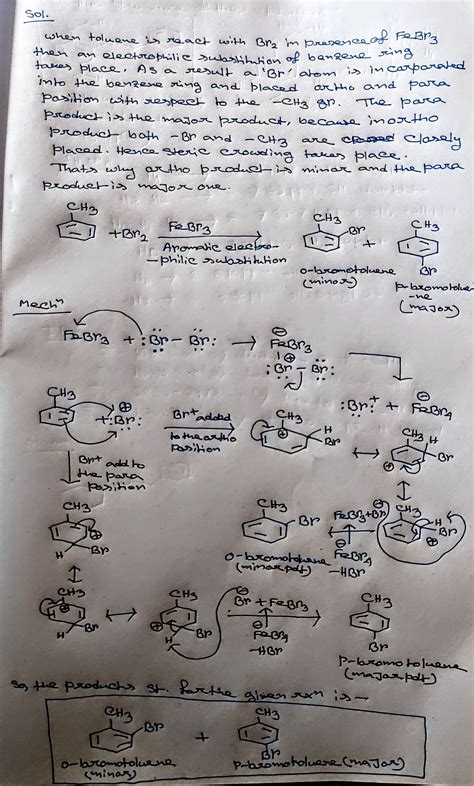 Sol.
when toluene is react with Br2 in presence of FeBr3
then an electrophilic substitution of benzene ring
takes place. As a result a 'Br' atom is incarporated
into the benzene ring and placed ortho and para
position with respect to the -CH3 gr. The para
product is the major product, because in ortho
product both -Br and -CH3 are closely
placed. Hence steric crowding takes place.
That's why ortho product is minor and the para
product is major one.
CH3 + Br2 FeBr3 CH3 Br + CH3 Br
Aromatic electro-
-philic substitution
o-bromotoluene
(minor)
p-bromotolue-
-ne
(major)
Mechn
FeBr3 + :Br - Br: → FeBr3
:Br - Br:
:Br:+ + FeBr4
CH3 + :Br: Br+ added
to the ortho
position
CH3 H Br ↔ CH3 H Br
Br+ add to
the para
position
CH3 H Br
CH3 Br
o-bromotoluene
(minor pdt)
FeBr3 + Br
FeBr4
-HBr
CH3 H Br
CH3 H Br ↔ CH3 H Br
Br + FeBr3
FeBr4
-HBr
CH3 Br
p-bromotoluene
(major pdt)
So, the products st. for the given rxn is -
CH3 Br + CH3 Br
o-bromotoluene
(minor)
p-bromotoluene (major)